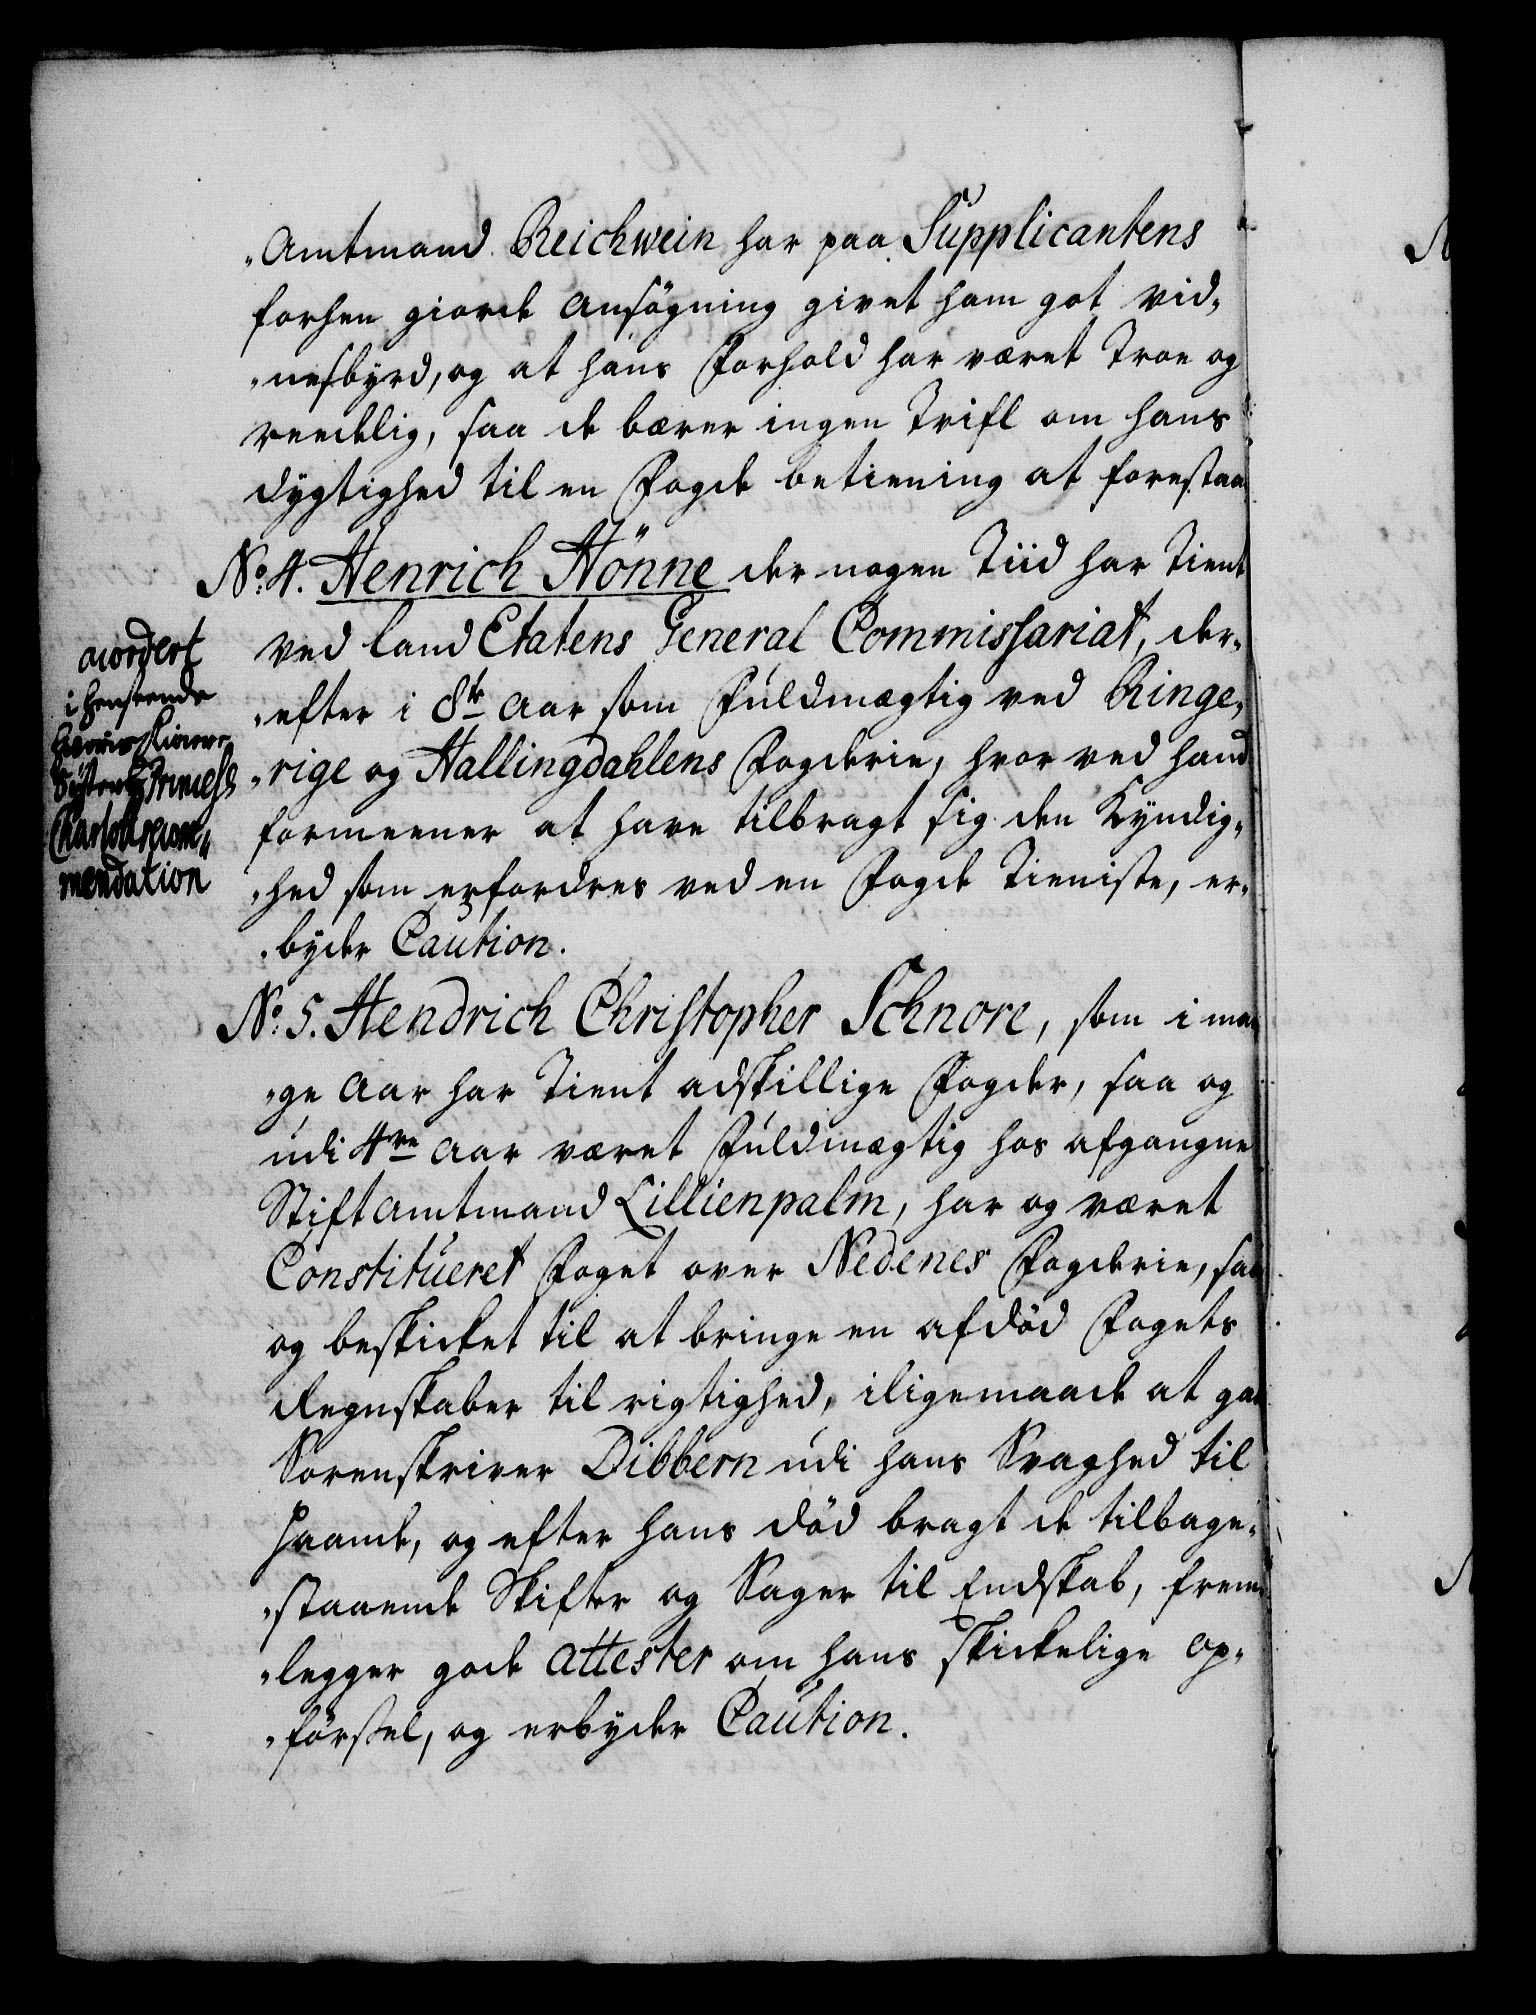 „Amtmand Reichwein har paa Supplicantens
forhen giorde Ansøgning givet ham got vid„
„nesbyrd, og at hans Forhold har været Troe og
reedelig, saa de bærer ingen Tvifl om hans
dygtighed til en Fogde betiening at forestaa
No. 4. Henrich Hönne der nogen Tiid har Tient
ved Land Etatens General Commissariat, der„
„efter i 8te Aar som Fuldmægtig ved Ringe„
„rige og Hallingdahlens Fogderie, hvor ved hand
formeener at have tilbragt sig den Kyndig„
„hed som erfordres ved en Fogde Tieniste, er„
„byder Caution.
accordert
i henseende
kiære
Syster Princess
Charlott recom„
mendation
No. 5. Hendrich Christopher Schnore, som i man
„ge Aar har Tient adskillige Fogder, saa og
udi 4re Aar været Fuldmægtig hos afgangne
Stiftamtmand Lillienpalm, har og været
Constitueret Foget over Nedenes Fogderie, saa
og beskicket til at bringe en afdöd Fogets
Regnskaber til rigtighed, iligemaade at gaa
Sorenskriver Dibbern udi hans Svaghed til
Haande, og efter hans död bragt de tilbage„
„staaende Skifter og Sager til Endskab, frem
„legger gode attester om hans skickelige op„
„förßel, og erbyder Caution.